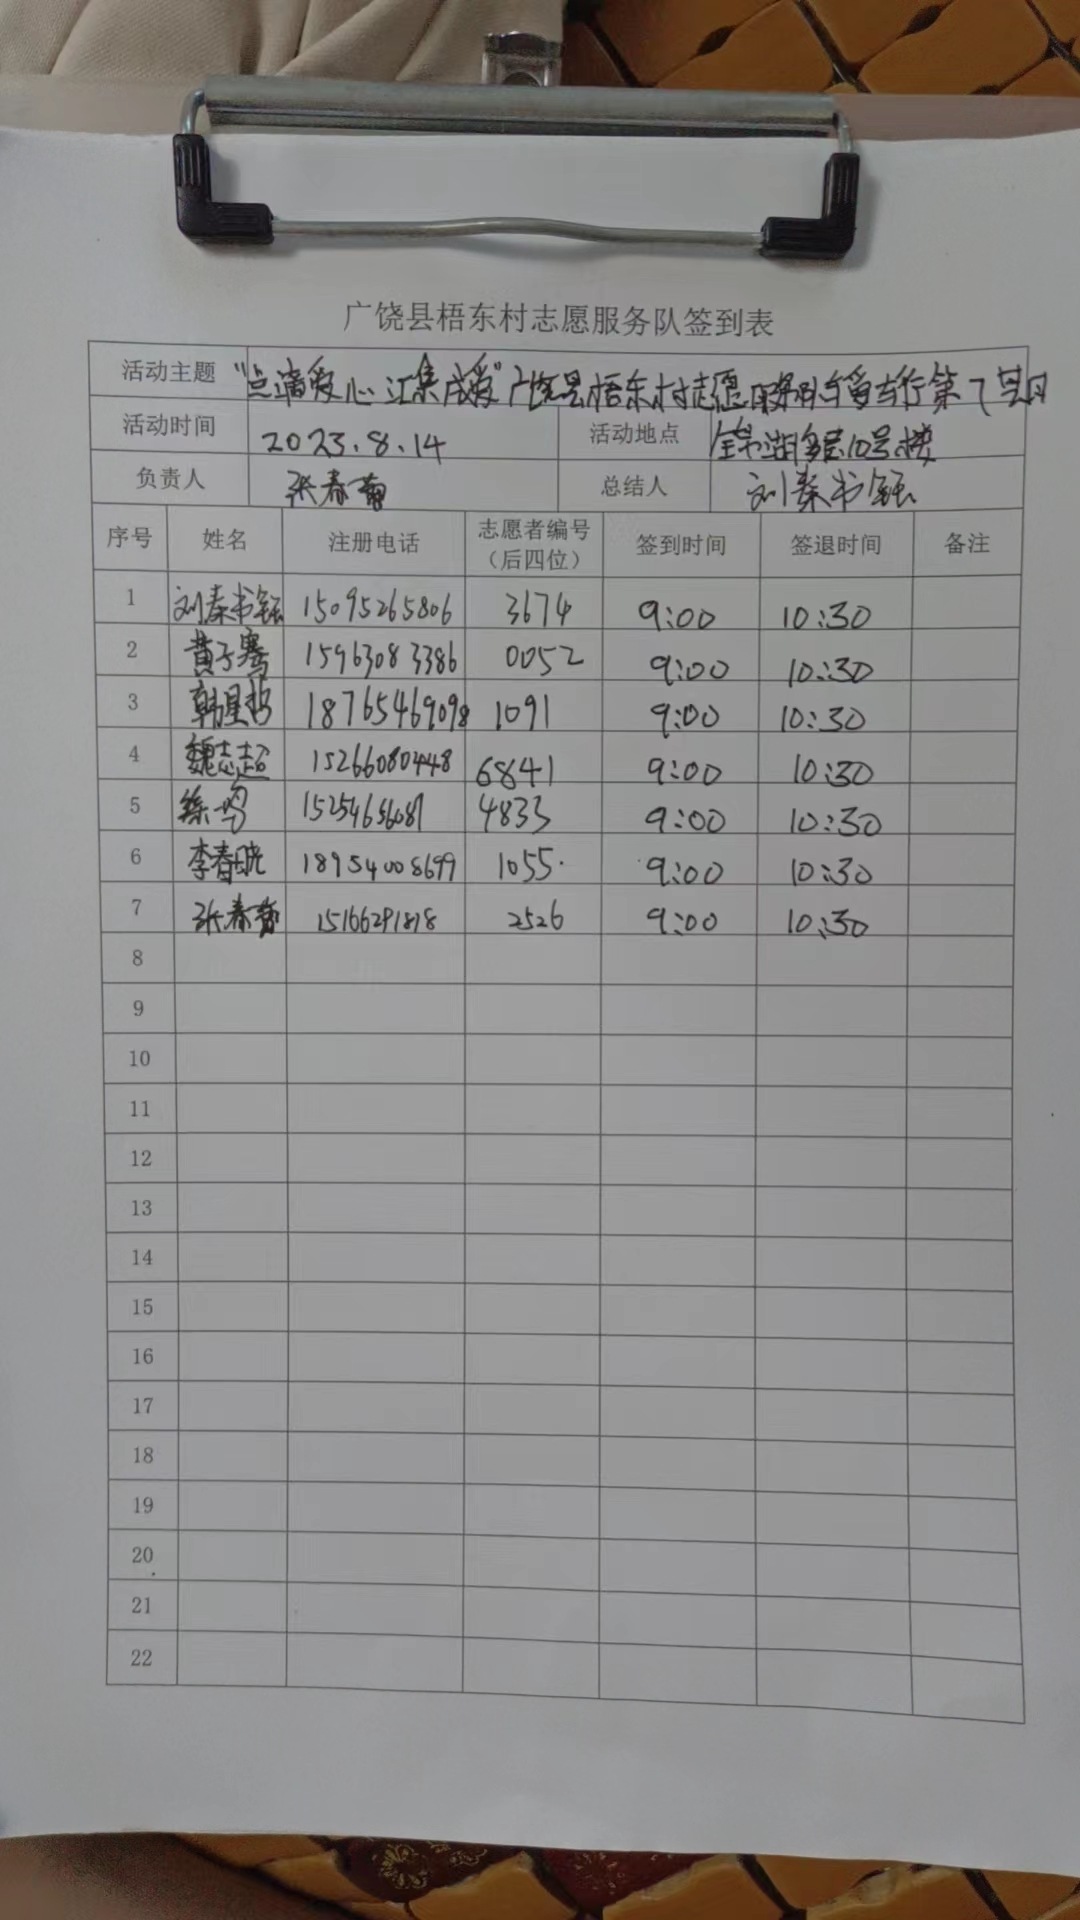 广饶县梧东村志愿服务队签到表
活动主题 "点滴爱心 汇集成爱"广饶县梧东村志愿服务队 第7期
活动时间 2023.8.14 活动地点 锦湖 10号楼
负责人 张春菊 总结人 刘秦书钰
序号 姓名 注册电话 志愿者编号（后四位） 签到时间 签退时间 备注
1 刘秦书钰 15095265806 3674 9:00 10:30
2 黄子骞 15963083386 0052 9:00 10:30
3 韩星哲 18765469098 1091 9:00 10:30
4 魏志超 15266080448 6841 9:00 10:30
5 15254656087 4833 9:00 10:30
6 李春晓 18954008699 1055. 9:00 10:30
7 张春菊 15166291818 2526 9:00 10:30
8
9
10
11
12
13
14
15
16
17
18
19
20
21
22